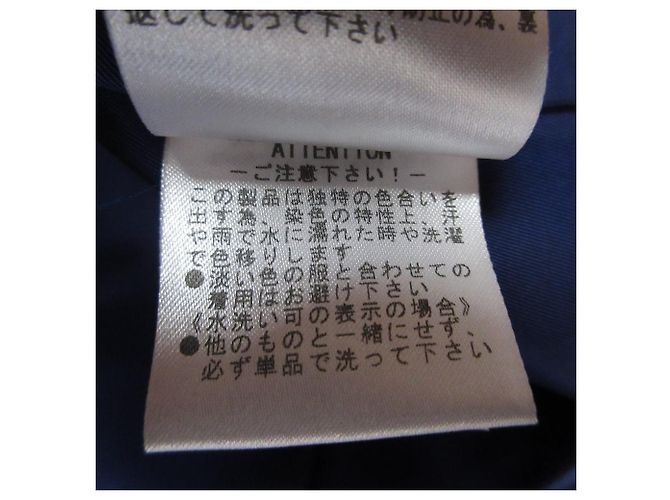 防止の為、裏
返して洗って下さい
ATTENTION
―ご注意下さい！―
この製品は独特の色合い、を
出す為、染色の特性上、汗
や雨で水に濡れた時や洗濯
で色移りします
●淡い色の服と合わせての
着用はお避け下さい
《水洗い可の表示の場合》
●他のものと一緒にせず、
必ず単品で洗って下さい